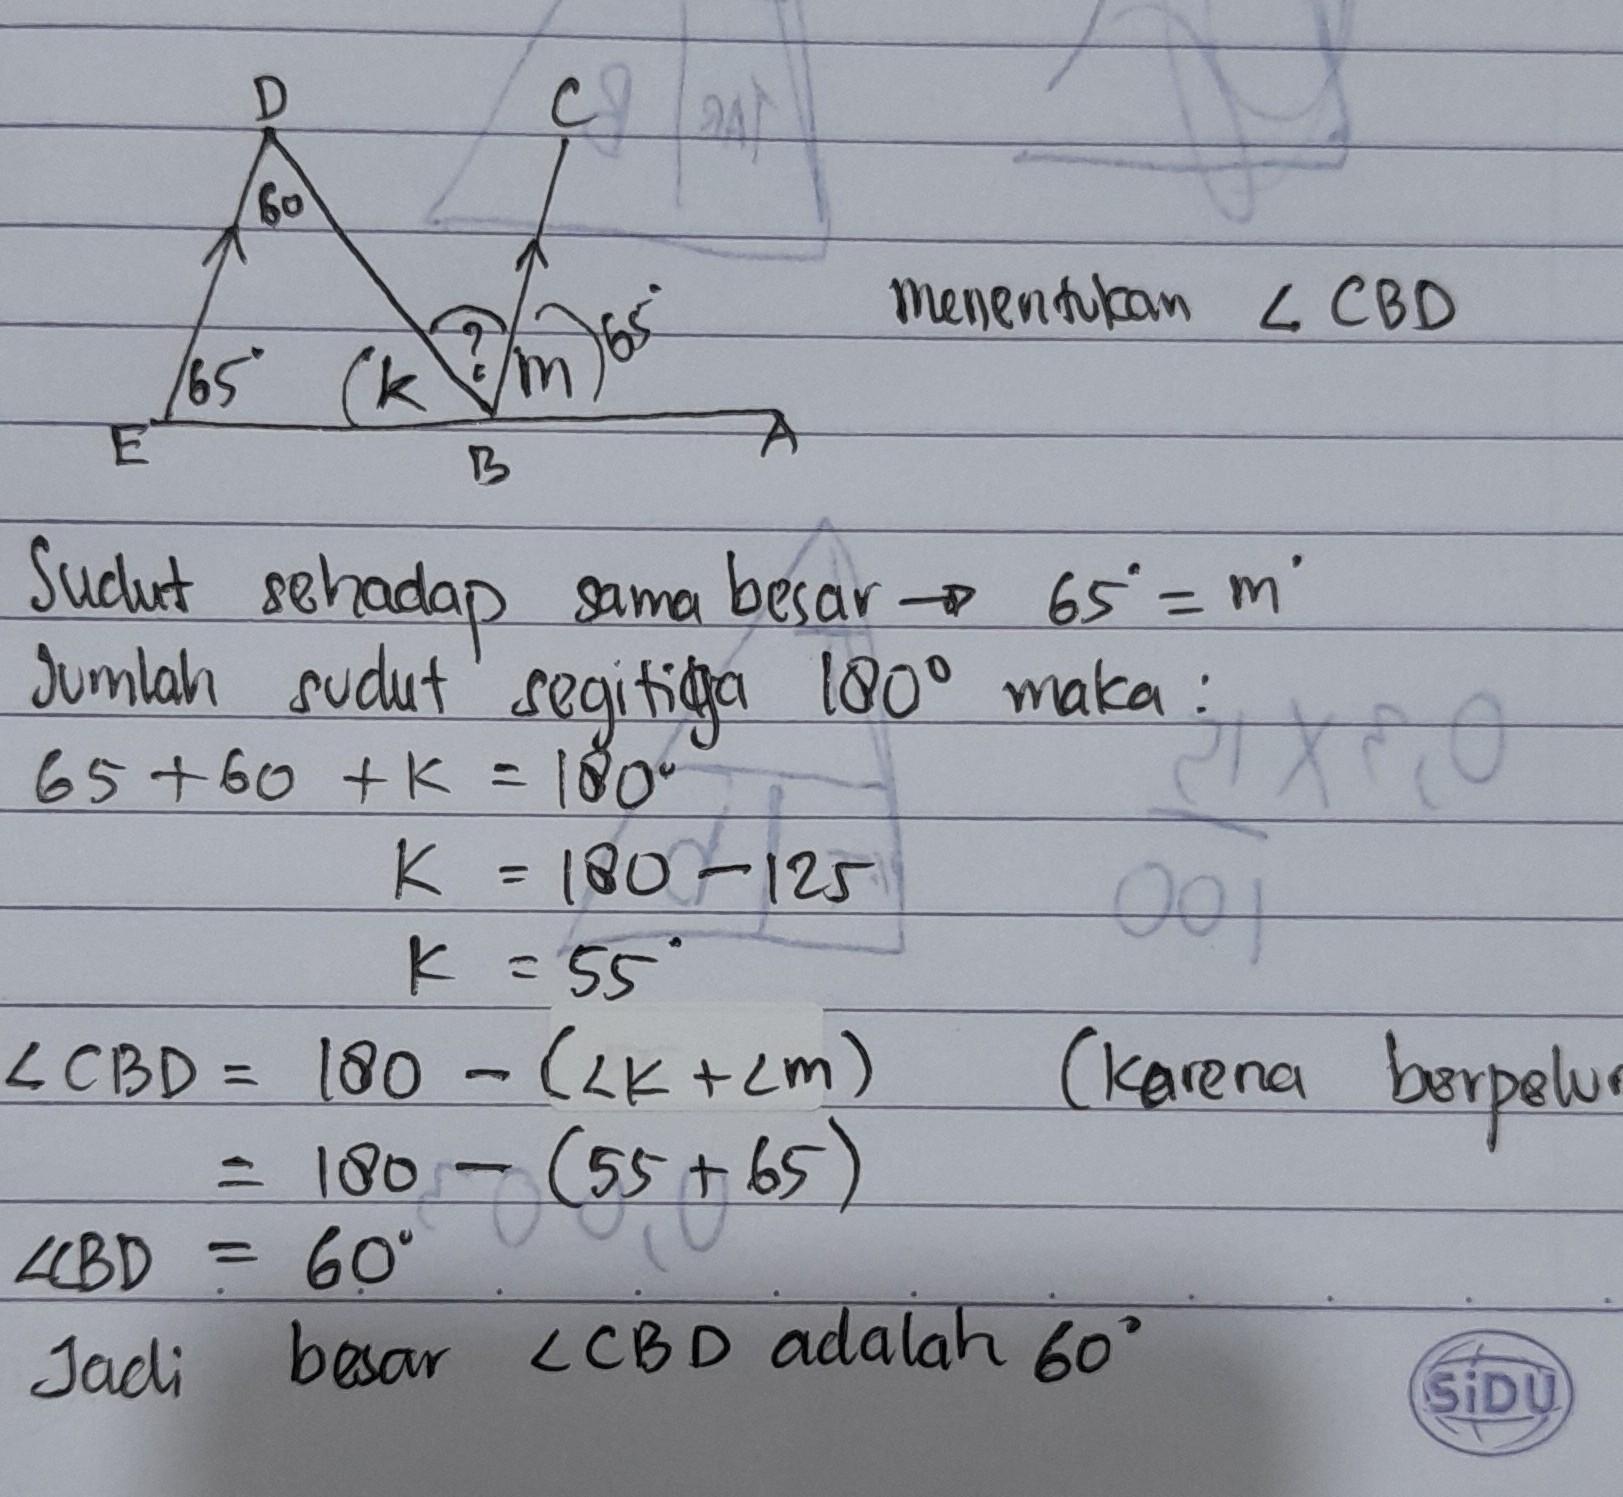 D C
60
65°
? m
65° (k
E B A
menentukan ∠ CBD
Sudut sehadap sama besar → 65° = m°
Jumlah sudut segitiga 180° maka :
65 + 60 + K = 180°
K = 180 - 125
K = 55°
∠CBD = 180 - (∠K + ∠m) (karena
= 180 - (55 + 65)
∠CBD = 60°
Jadi besar ∠CBD adalah 60°
SiDU